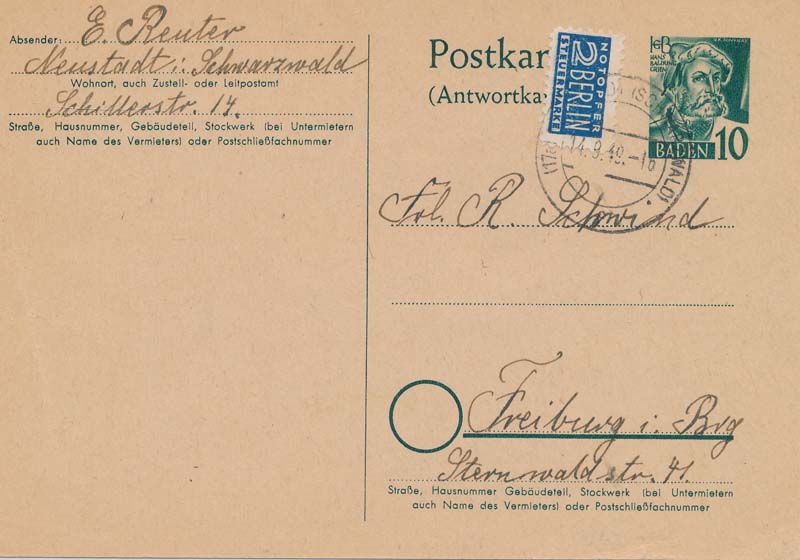 Absender: E. Reuter
Neustadt i. Schwarzwald
Wohnort, auch Zustell- oder Leitpostamt
Schillerstr. 14.
Straße, Hausnummer, Gebäudeteil, Stockwerk (bei Untermietern
auch Name des Vermieters) oder Postschließfachnummer
Postkar
(Antwortka
NOTOPFER
2 BERLIN
STEUERMARKE
HANS
BALDUNG
GRIEN
BADEN 10
(17b)
14.9.49.-16
WALD)
Frl. R. Schwind
Freiburg i. Brg
Sternwaldstr. 41.
Straße, Hausnummer Gebäudeteil, Stockwerk (bei Untermietern
auch Name des Vermieters) oder Postschließfachnummer